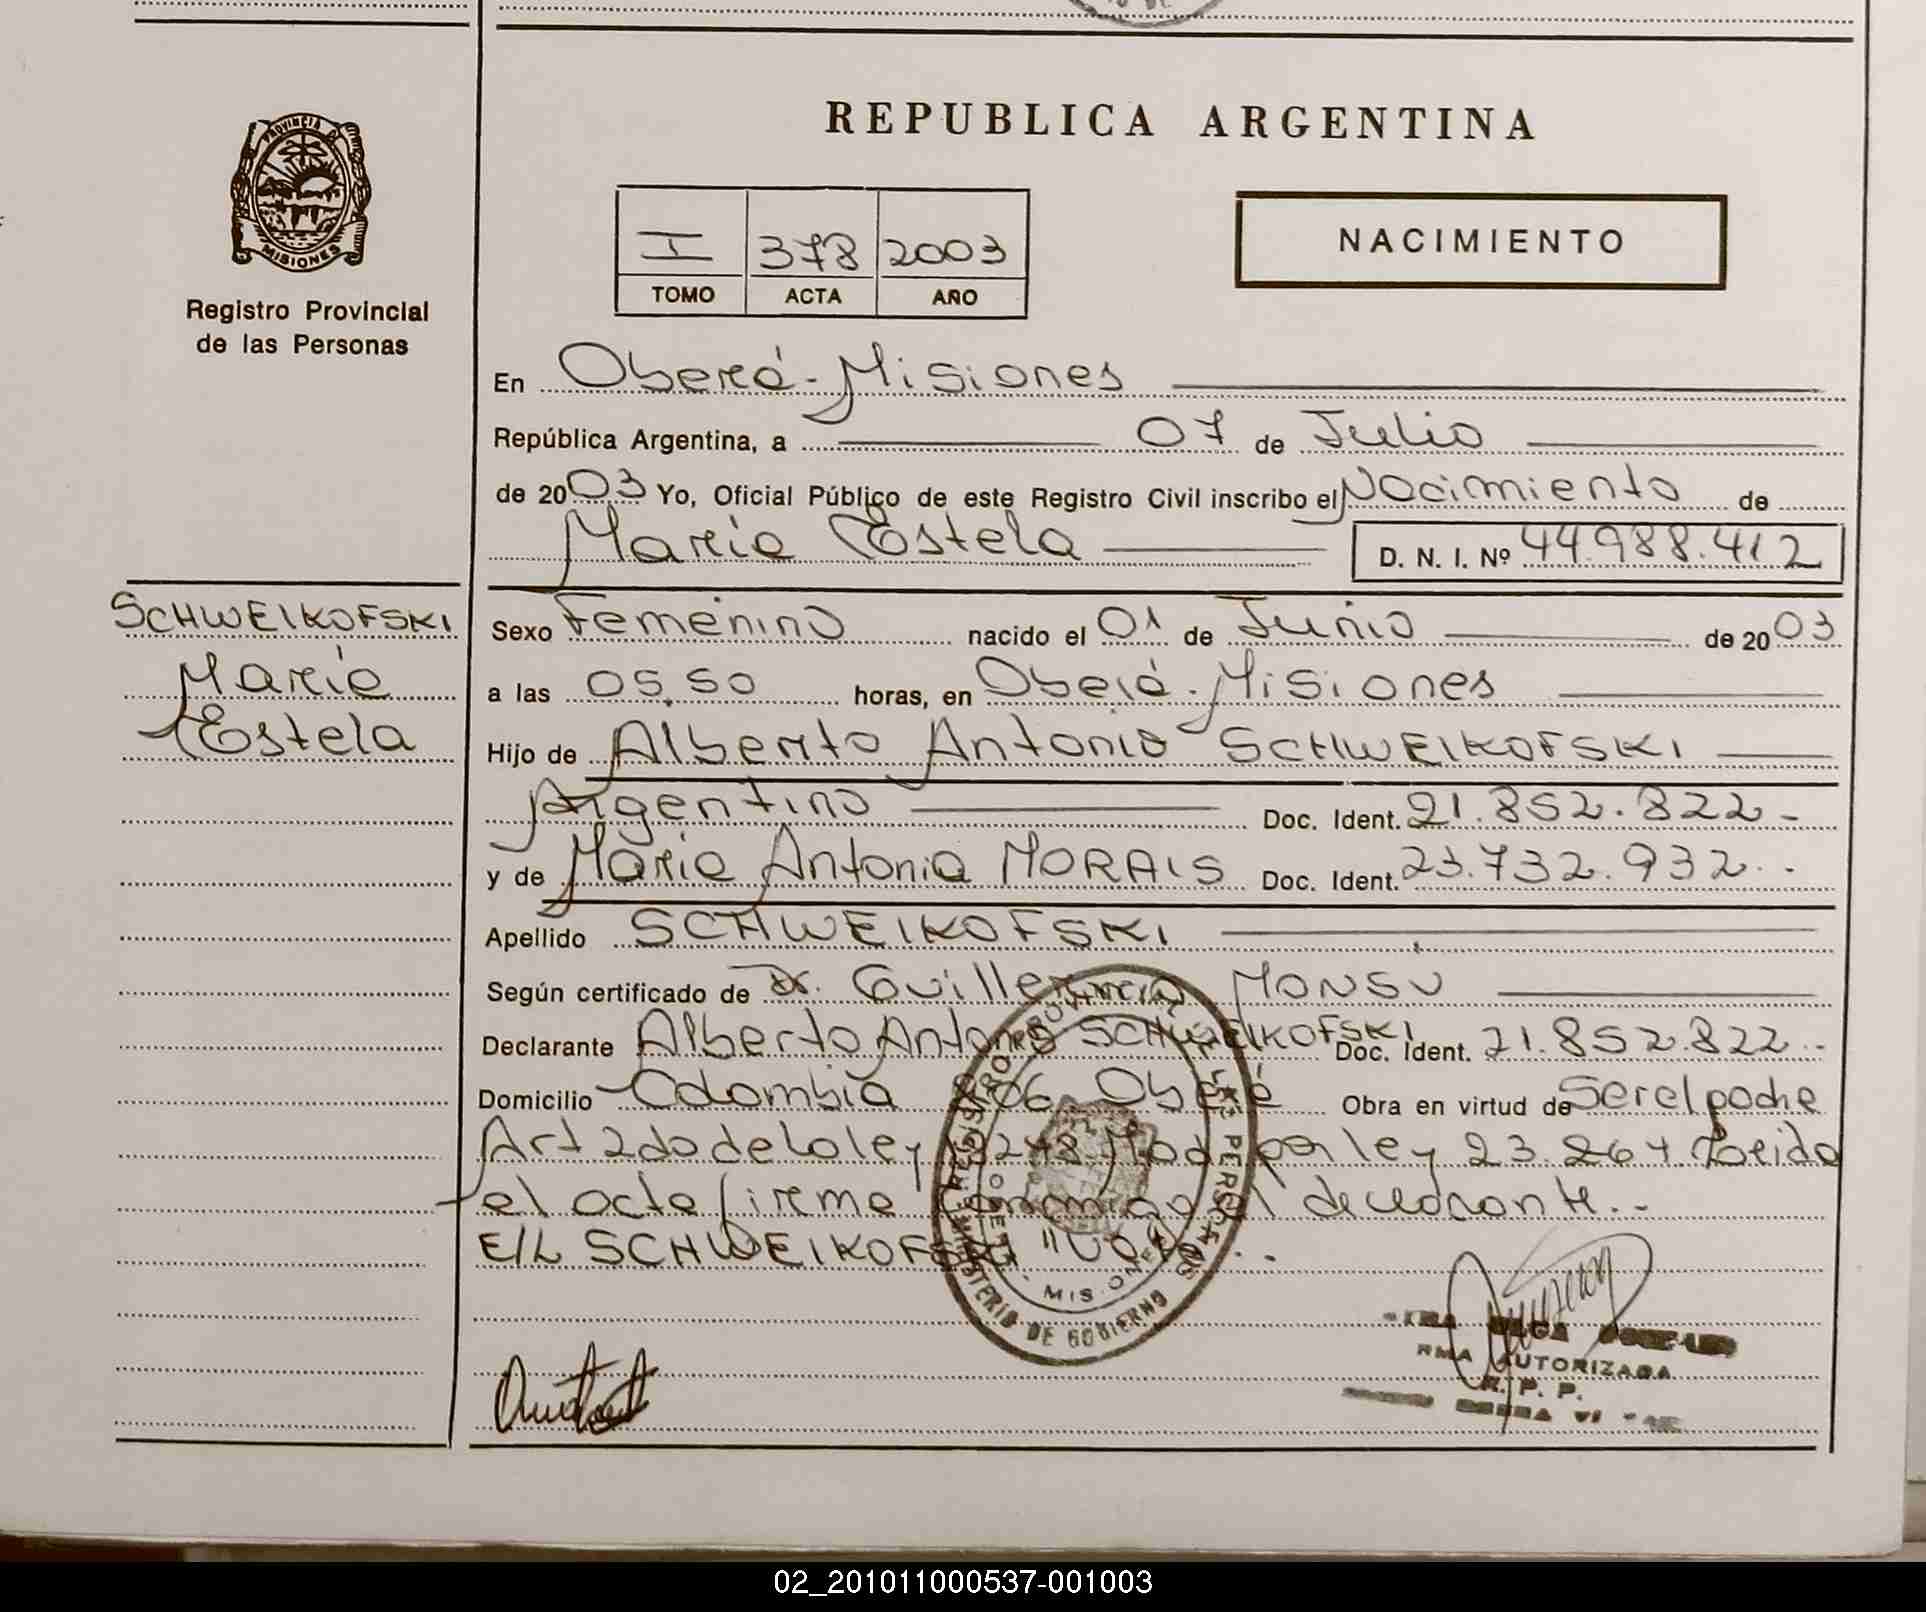 REPUBLICA ARGENTINA
PROVINCIA DE
MISIONES
Registro Provincial
de las Personas
I 378 2003
TOMO ACTA AÑO
NACIMIENTO
En Oberá - Misiones
República Argentina, a 07 de Julio
de 2003 Yo, Oficial Público de este Registro Civil inscribo el Nacimiento de
Maria Estela D. N. I. Nº 44.988.412
SCHWEIKOFSKI
Maria
Estela
Sexo Femenino nacido el 01 de Junio de 2003
a las 05,50 horas, en Oberá - Misiones
Hijo de Alberto Antonio SCHWEIKOFSKI
Argentino Doc. Ident. 21.852.822 -
y de Maria Antonia MORAIS Doc. Ident. 23.732.932 . -
Apellido SCHWEIKOFSKI
Según certificado de Dr. Guillermo MONSU
Declarante Alberto Antonio SCHWEIKOFSKI Doc. Ident. 21.852.822 . -
Domicilio Colombia Oberá Obra en virtud de
Art 2do de la ley por ley 23.264 Leida
el acta firme conmigo el declarante . -
E/L SCHWEIKOFSKI "Vale" . -
REGISTRO PROVINCIAL DE LAS PERSONAS
MINISTERIO DE GOBIERNO
MISIONES
AUTORIZADA
R. P. P.
02_201011000537-001003